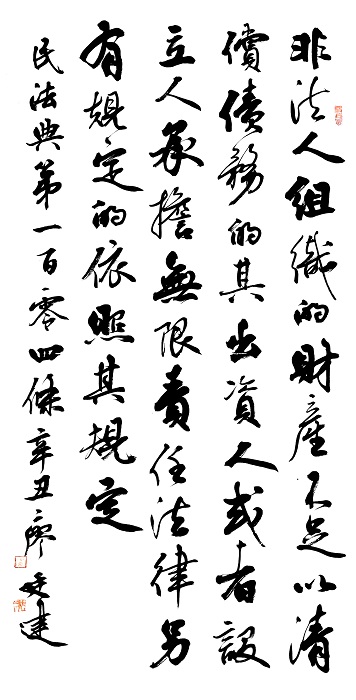 非法人組織的財產不足以清
償債務的其出資人或者設
立人承擔無限責任法律另
有規定的依照其規定
民法典第一百零四條辛丑廖廷建